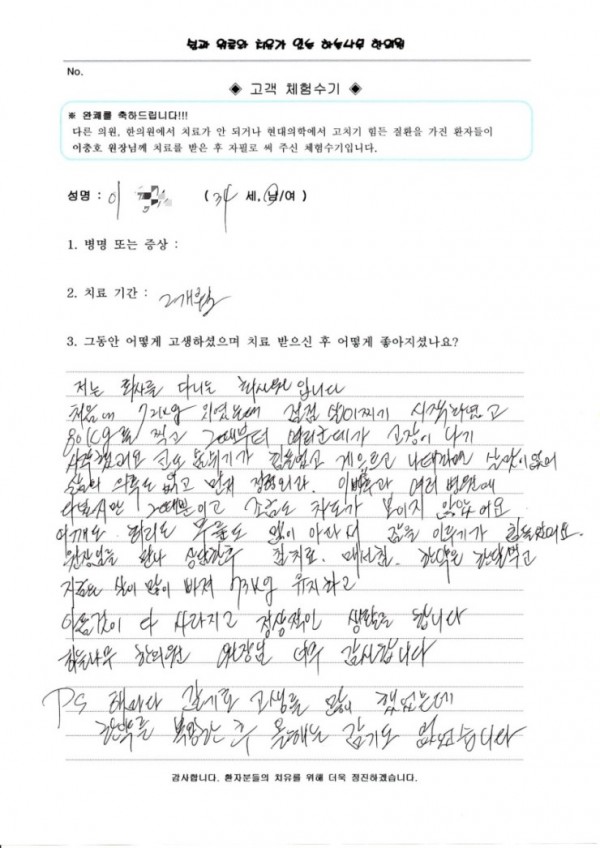 쉼과 위로와 치유가 있는 하늘나무 한의원
No.
◈ 고객 체험수기 ◈
※ 완쾌를 축하드립니다!!!
다른 의원, 한의원에서 치료가 안 되거나 현대의학에서 고치기 힘든 질환을 가진 환자들이
이충호 원장님께 치료를 받은 후 자필로 써 주신 체험수기입니다.
성명 : 이 ( 34 세.남/여 )
1. 병명 또는 증상 :
2. 치료 기간 : 2개월
3. 그동안 어떻게 고생하셨으며 치료 받으신 후 어떻게 좋아지셨나요?
저는 회사를 다니는 회사원입니다
처음에 72kg 이었는데 점점 살이찌기 시작하면서
80kg를 찍고 그때부터 여러군데가 고장이 나기
시작했어요 코도 숨쉬기가 힘들었고 게으르고 나태해지며
의욕도 없고 이빈후과 여러 병원에
다녔지만 그때뿐이고 조금도 차도가 보이지 않았어요
어깨도 허리도 무릎도 많이 아파서 잠을 이루기가 힘들었어요.
원장님을 만나 상담한후 침치료. 매선침. 한약은 한달먹고
지금은 살이 많이 빠져 73kg 유지하고
아픈것이 다 사라지고 정상적인 생활을 합니다
하늘나무 한의원 원장님 너무 감사합니다
PS 해마다 감기로 고생을 많이 했었는데
한약을 복용한 후 올해는 감기도 없었습니다
감사합니다. 환자분들의 치유를 위해 더욱 정진하겠습니다.